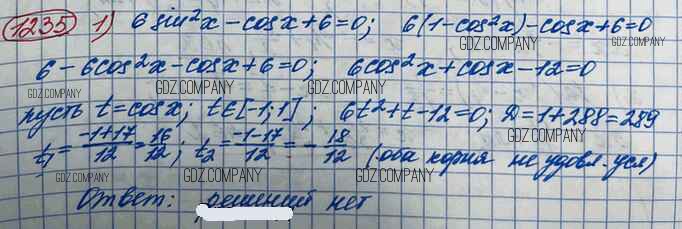 1235 1) 6 sin²x - cosx + 6 = 0; 6(1 - cos²x) - cosx + 6 = 0
GDZ.COMPANY GDZ.COMPANY
6 - 6cos²x - cosx + 6 = 0; 6cos²x + cosx - 12 = 0
GDZ.COMPANY GDZ.COMPANY
пусть t = cosx; t∈[-1;1]; 6t² + t - 12 = 0; D = 1 + 288 = 289
GDZ.COMPANY GDZ.COMPANY
t₁ = (-1+17)/12 = 16/12; t₂ = (-1-17)/12 = -18/12 (оба корня не удовл-уся)
GDZ.COMPANY GDZ.COMPANY
Ответ: решений нет
GDZ.COMPANY